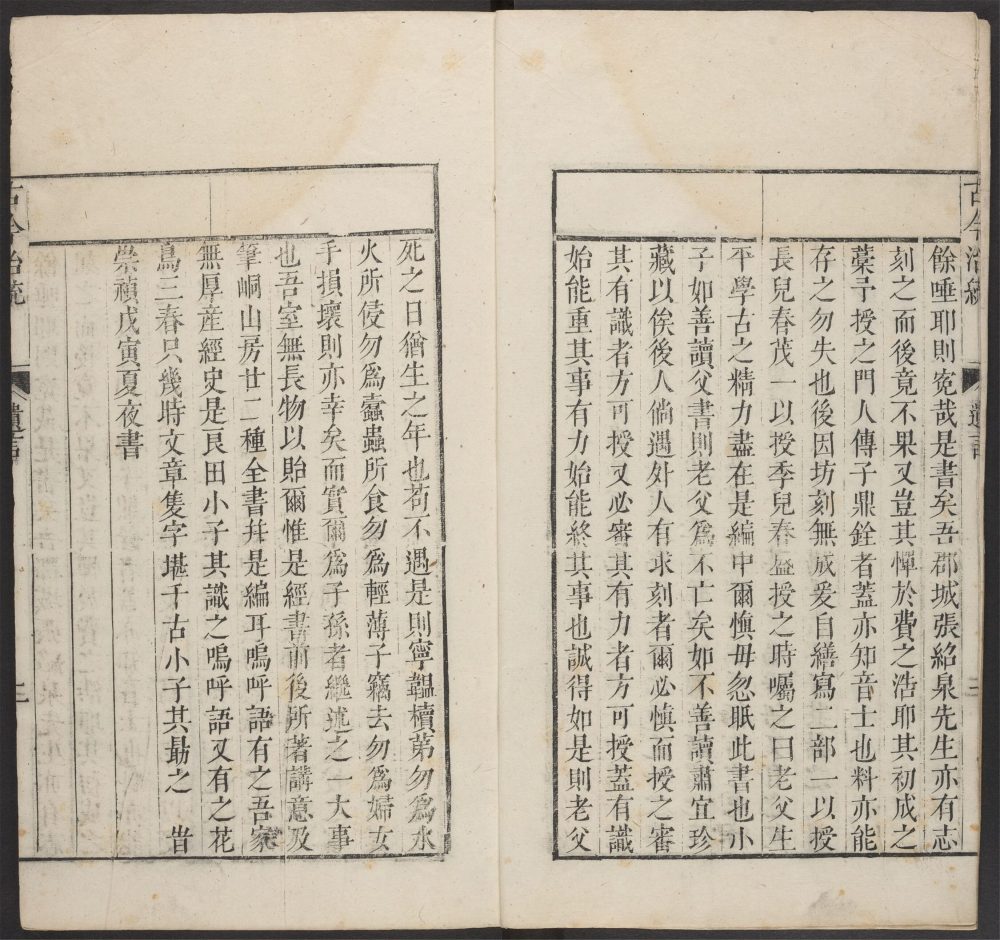 古今治統
遺言
二
餘唾耶則寃哉是書矣吾郡城張紹泉先生亦有志
刻之而後竟不果又豈其憚於費之浩耶其初成之
藁予授之門人傳子鼎銓者蓋亦知音士也料亦能
存之勿失也後因坊刻無成爰自繕寫二部一以授
長兒春茂一以授季兒春盛授之時囑之曰老父生
平學古之精力盡在是編中爾慎毋忽眠此書也小
子如善讀父書則老父爲不亡矣如不善讀肅宜珍
藏以俟後人倘遇外人有求刻者爾必慎而授之審
其有識者方可授又必審其有力者方可授蓋有識
始能重其事有力始能終其事也誠得如是則老父
死之日猶生之年也茍不遇是則寧韞櫝第勿爲水
火所侵勿爲蠹蟲所食勿爲輕薄子竊去勿爲婦女
手損壞則亦幸矣而實爾爲子孫者繼述之一大事
也吾室無長物以貽爾惟是經書前後所著講意及
筆峒山房廿二種全書幷是編耳嗚呼語有之吾家
無厚產經史是良田小子其識之嗚呼語又有之花
鳥三春只幾時文章隻字堪千古小子其勗之 旹
崇禎戊寅夏夜書
古今治統
遺言
三